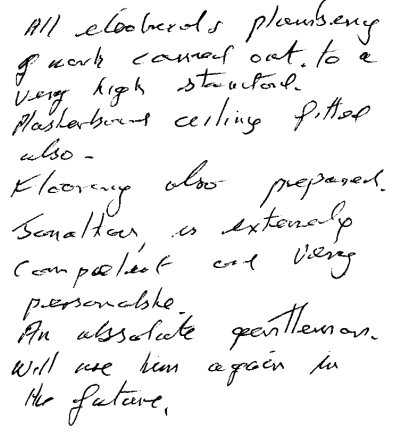 All electrical & plumbing
& work carried out. to a
very high standard.
Plasterboard ceiling fitted
also -
Flooring also prepared.
Jonathan, is extremely
competent and very
personable.
An absolute gentleman.
Will use him again in
the future.